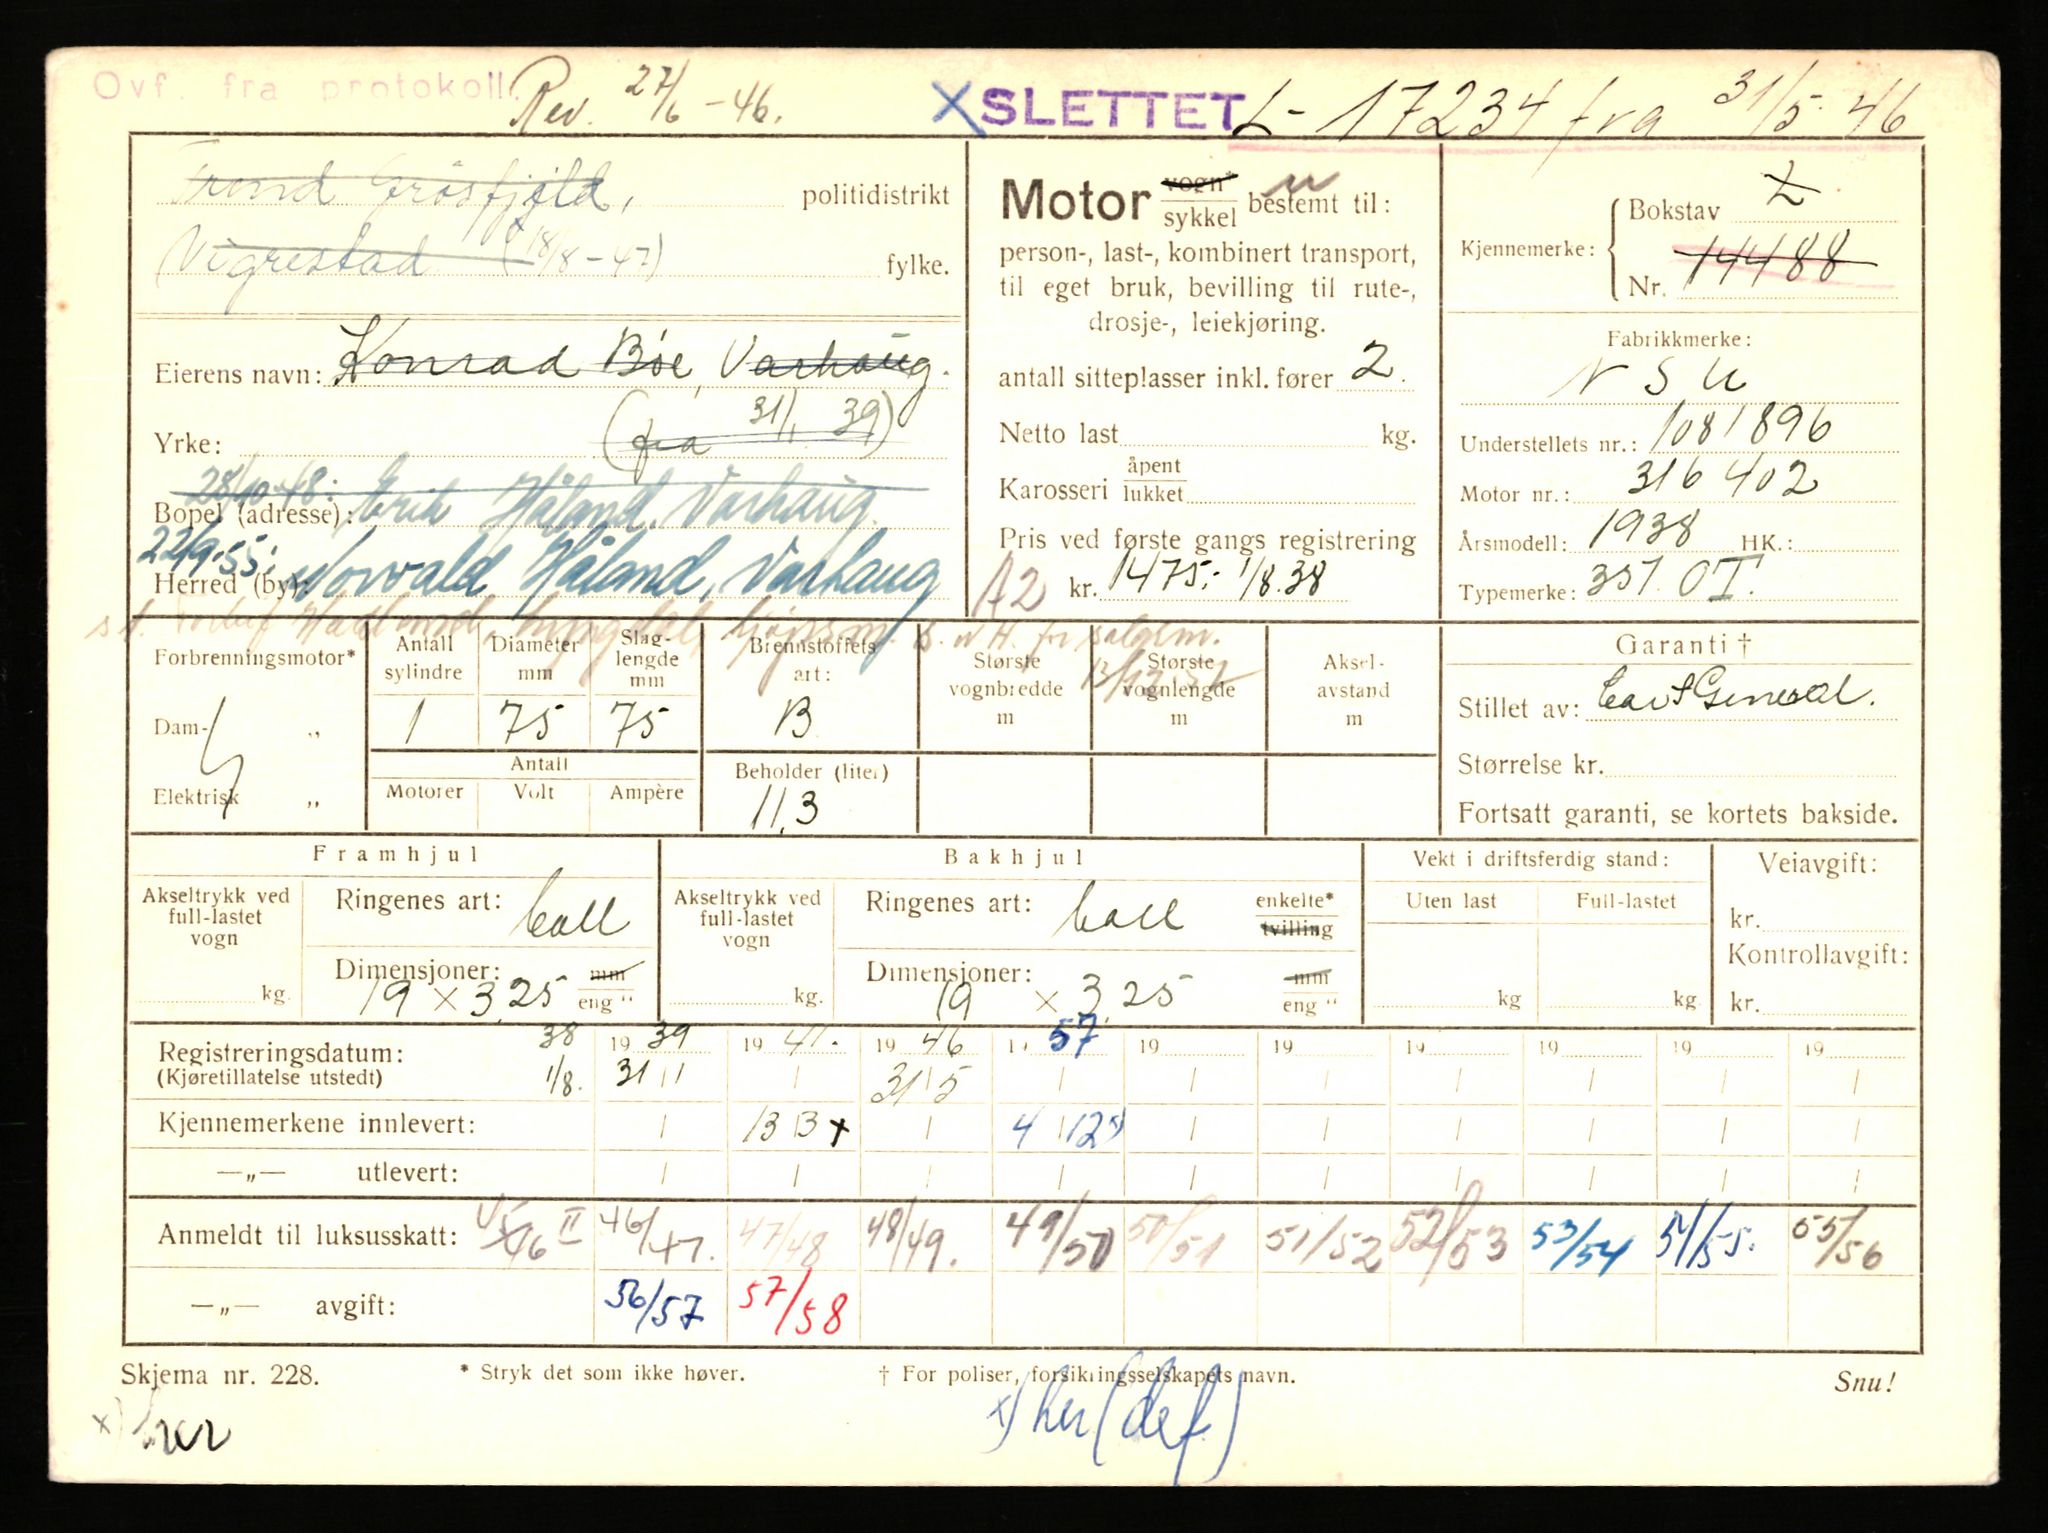 Ovf. fra protokoll.
Rev. 27/6 - 46.
X SLETTET L- 17234 fra 31/5 46
Trond Grøsfjeld, politidistrikt
(Vigrestad (18/8 - 47) fylke.
Eierens navn: Konrad Bøe, Varhaug.
Yrke: (fra 31/1 39)
28/10-48: Erik Håland, Varhaug.
Bopel (adresse):
22/9-55: Norvald Håland, Varhaug
Herred (by):
Hadland, Lyngdal, S. n H. for salglm.
Motor vogn* sykkel bestemt til:
person-, last-, kombinert transport,
til eget bruk, bevilling til rute-,
drosje-, leiekjøring.
antall sitteplasser inkl. fører 2.
Netto last kg.
Karosseri åpent lukket
Pris ved første gangs registrering
A2 kr. 1475,- 1/8.38
Kjennemerke: Bokstav L
Nr. 14488
Fabrikkmerke:
N S U
Understellets nr.: 1081896
Motor nr.: 316 402
Årsmodell: 1938 HK.:
Typemerke: 351. OT.
Forbrenningsmotor*
Dam- „
Elektrisk „
Antall sylindre
1
Diameter mm
75
Slaglengde mm
75
Antall
Motorer Volt Ampère
Brennstoffets art:
B
Beholder (liter)
11,3
Største vognbredde m
Største vognlengde m
Akselavstand m
Garanti †
Stillet av: Car & General.
Størrelse kr.
Fortsatt garanti, se kortets bakside.
Framhjul
Akseltrykk ved full-lastet vogn
kg.
Ringenes art: Ball
Dimensjoner: mm
19 x 3,25 eng "
Bakhjul
Akseltrykk ved full-lastet vogn
kg.
Ringenes art: Ball enkelte* tvilling
Dimensjoner: mm
19 x 3,25 eng "
Vekt i driftsferdig stand:
Uten last Full-lastet
kg kg.
Veiavgift:
kr.
Kontrollavgift:
kr.
Registreringsdatum: 38 19 39 19 41. 19 46 57 19 19 19 19 19 19
(Kjøretillatelse utstedt) 1/8. 31 1 31 5
Kjennemerkene innlevert: 13 3 x 4 12 x)
—„— utlevert:
Anmeldt til luksusskatt: 45/46 II 46/47. 47/48 48/49. 49/50 50/51 51/52 52/53 53/54 54/55. 55/56
—„— avgift: 56/57 57/58
Skjema nr. 228. * Stryk det som ikke høver. † For poliser, forsikringsselskapets navn. Snu!
x) her (def)
x)